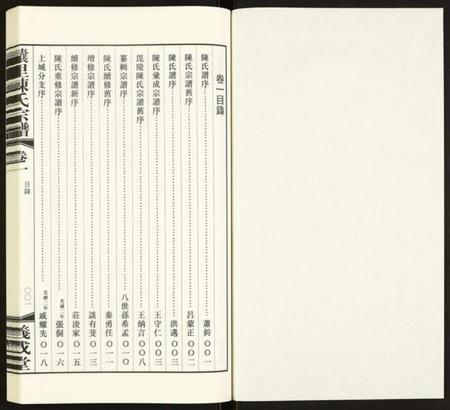 卷一目錄
陳氏譜序……蕭鈞〇〇一
陳氏宗譜舊序……呂蒙正〇〇二
陳氏譜序……洪邁〇〇三
陳氏彙成宗譜序……王守仁〇〇三
毘陵陳氏宗譜舊序……王納言〇〇八
纂輯宗譜序……八世孫希孟〇一〇
陳氏續修舊序……秦勇任〇一一
增修宗譜序……談有斐〇一三
續修宗譜新序……莊浚家〇一五
陳氏重修宗譜序……光緒二年張侗〇一六
上城分支序……光緒二年戚耀先〇一八
陳氏宗譜
卷一
目錄
〇〇一
義成堂